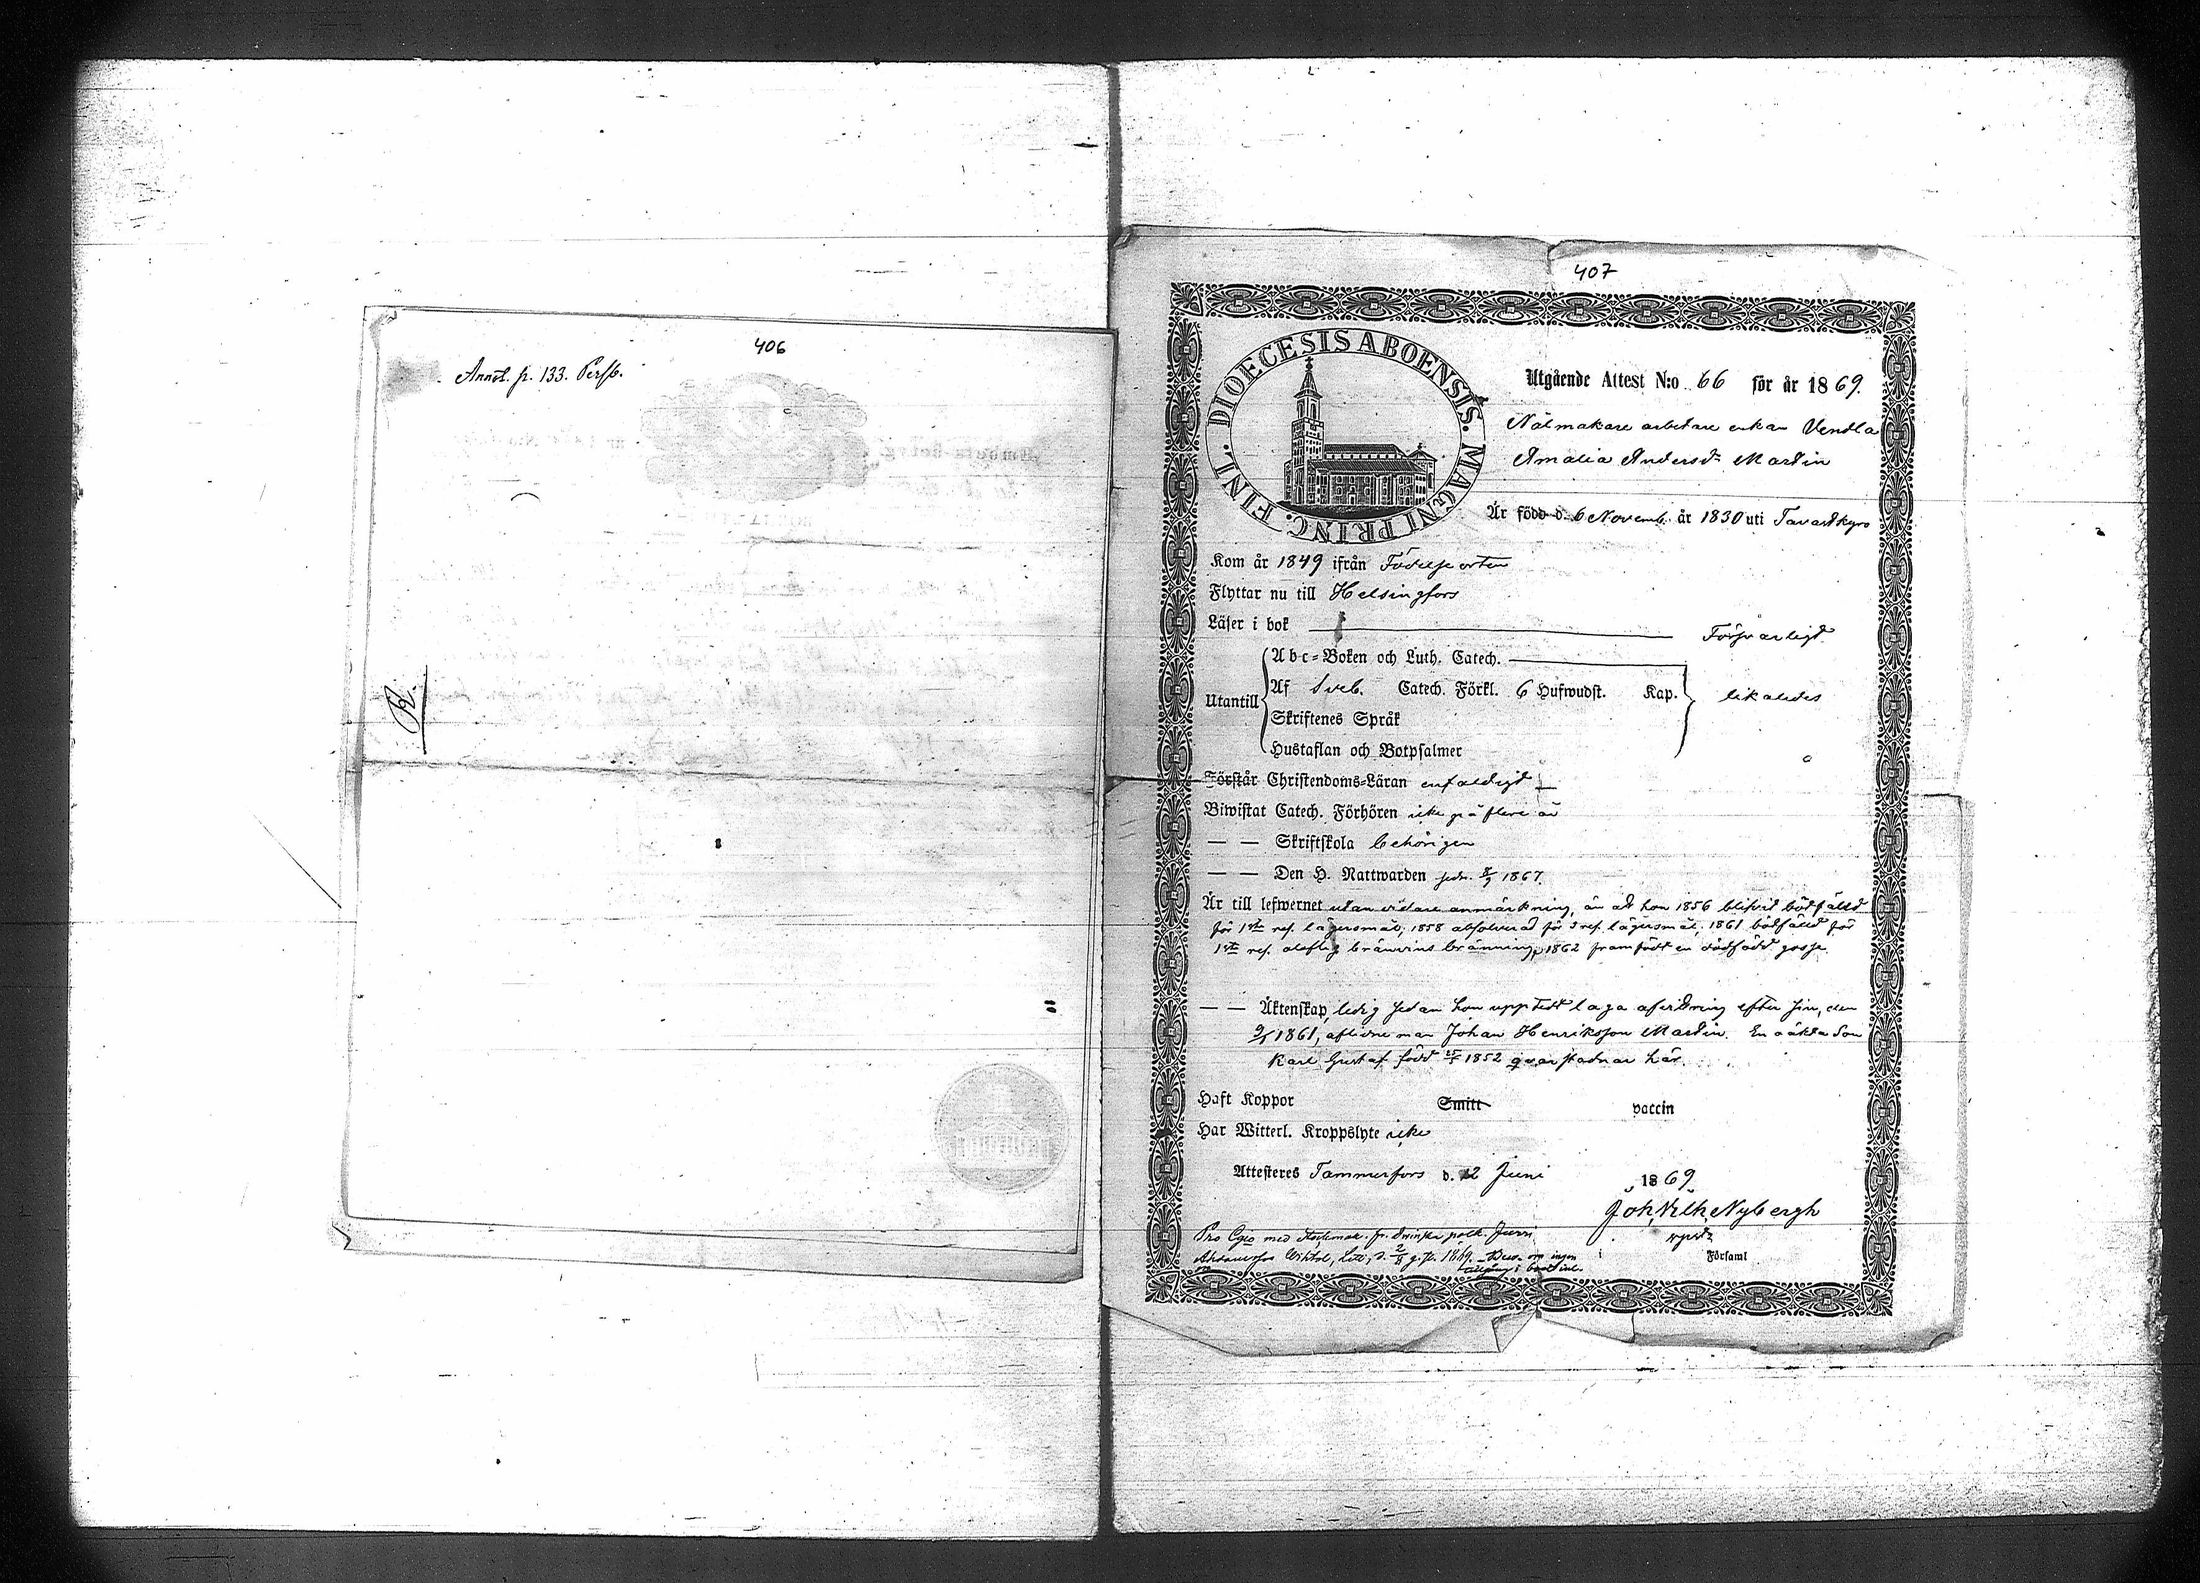 406
Annot. p. 133. Persb.
R.
407
DIOECESIS ABOENSIS. MAGNI PRINC. FINL.
Utgående Attest N:o 66 för år 1869.
Nålmakare arbetare enkan Vendla
Amalia Andersdr Martin
Är född d. 6 Novemb. år 1830 uti Tavastkyro
Kom år 1849 ifrån Födelse orten
Flyttar nu till Helsingfors
Läser i bok Försvarligt
Utantill
Abc-Boken och Luth. Catech.
Af Sveb. Catech. Förkl. 6 Hufwudst. Kap. likaledes
Skriftenes Språk
Hustaflan och Botpsalmer
Förstår Christendoms-Läran enfaldigt
Biwistat Catech. Förhören icke på flere år
— — Skriftskola behörigen
— — Den H. Nattwarden sedn. 1867.
Är till lefwernet utan vidare anmärkning, än att hon 1856 blifvit bötfälld
för 1sta res. lägersmål, 1858 absolverad för 2 res. lägersmål, 1861 bötfälld för
1sta res. olaflig bränvins bränning, 1862 framfödt en dödfödd gosse.
— — Äktenskap, ledig sedan hon uppstedt laga afvittring efter sin, den
1861, aflidne man Johan Henriksson Martin. En oäkta Son
Karl Gustaf född 1852 qvarstadnar här.
Haft Koppor Smitt vaccin
Har Witterl. Kroppslyte icke
Attesteres Tammerfors d. 12 Juni 1869
Joh. Vilh. Nybergh
Pro Ego med
i Församl